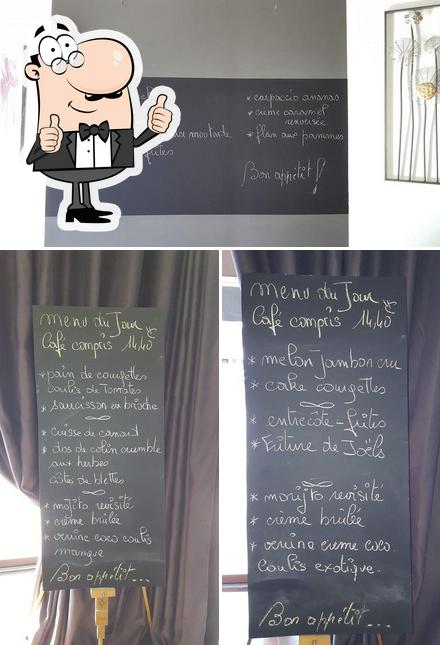 aux moutarde
frites
* carpaccio ananas
* crème caramel
revisitée
* flan aux pommes
Bon appétit !
Menu du Jour
Café compris 14,40
* pain de courgettes
coulis de Tomates
* saucisson en brioche
* cuisse de canard
* dos de colin crumble
aux herbes
côtes de blettes
* mojito revisité
* crème brûlée
* verrine coco coulis
mangue
Bon appétit...
Menu du Jour
Café compris 14,40
* melon Jambon cru
* cake courgettes
* entrecôte-frites
* Friture de Joëls
* mojito revisité
* crème brûlée
* verrine creme coco
coulis exotique.
Bon appétit...